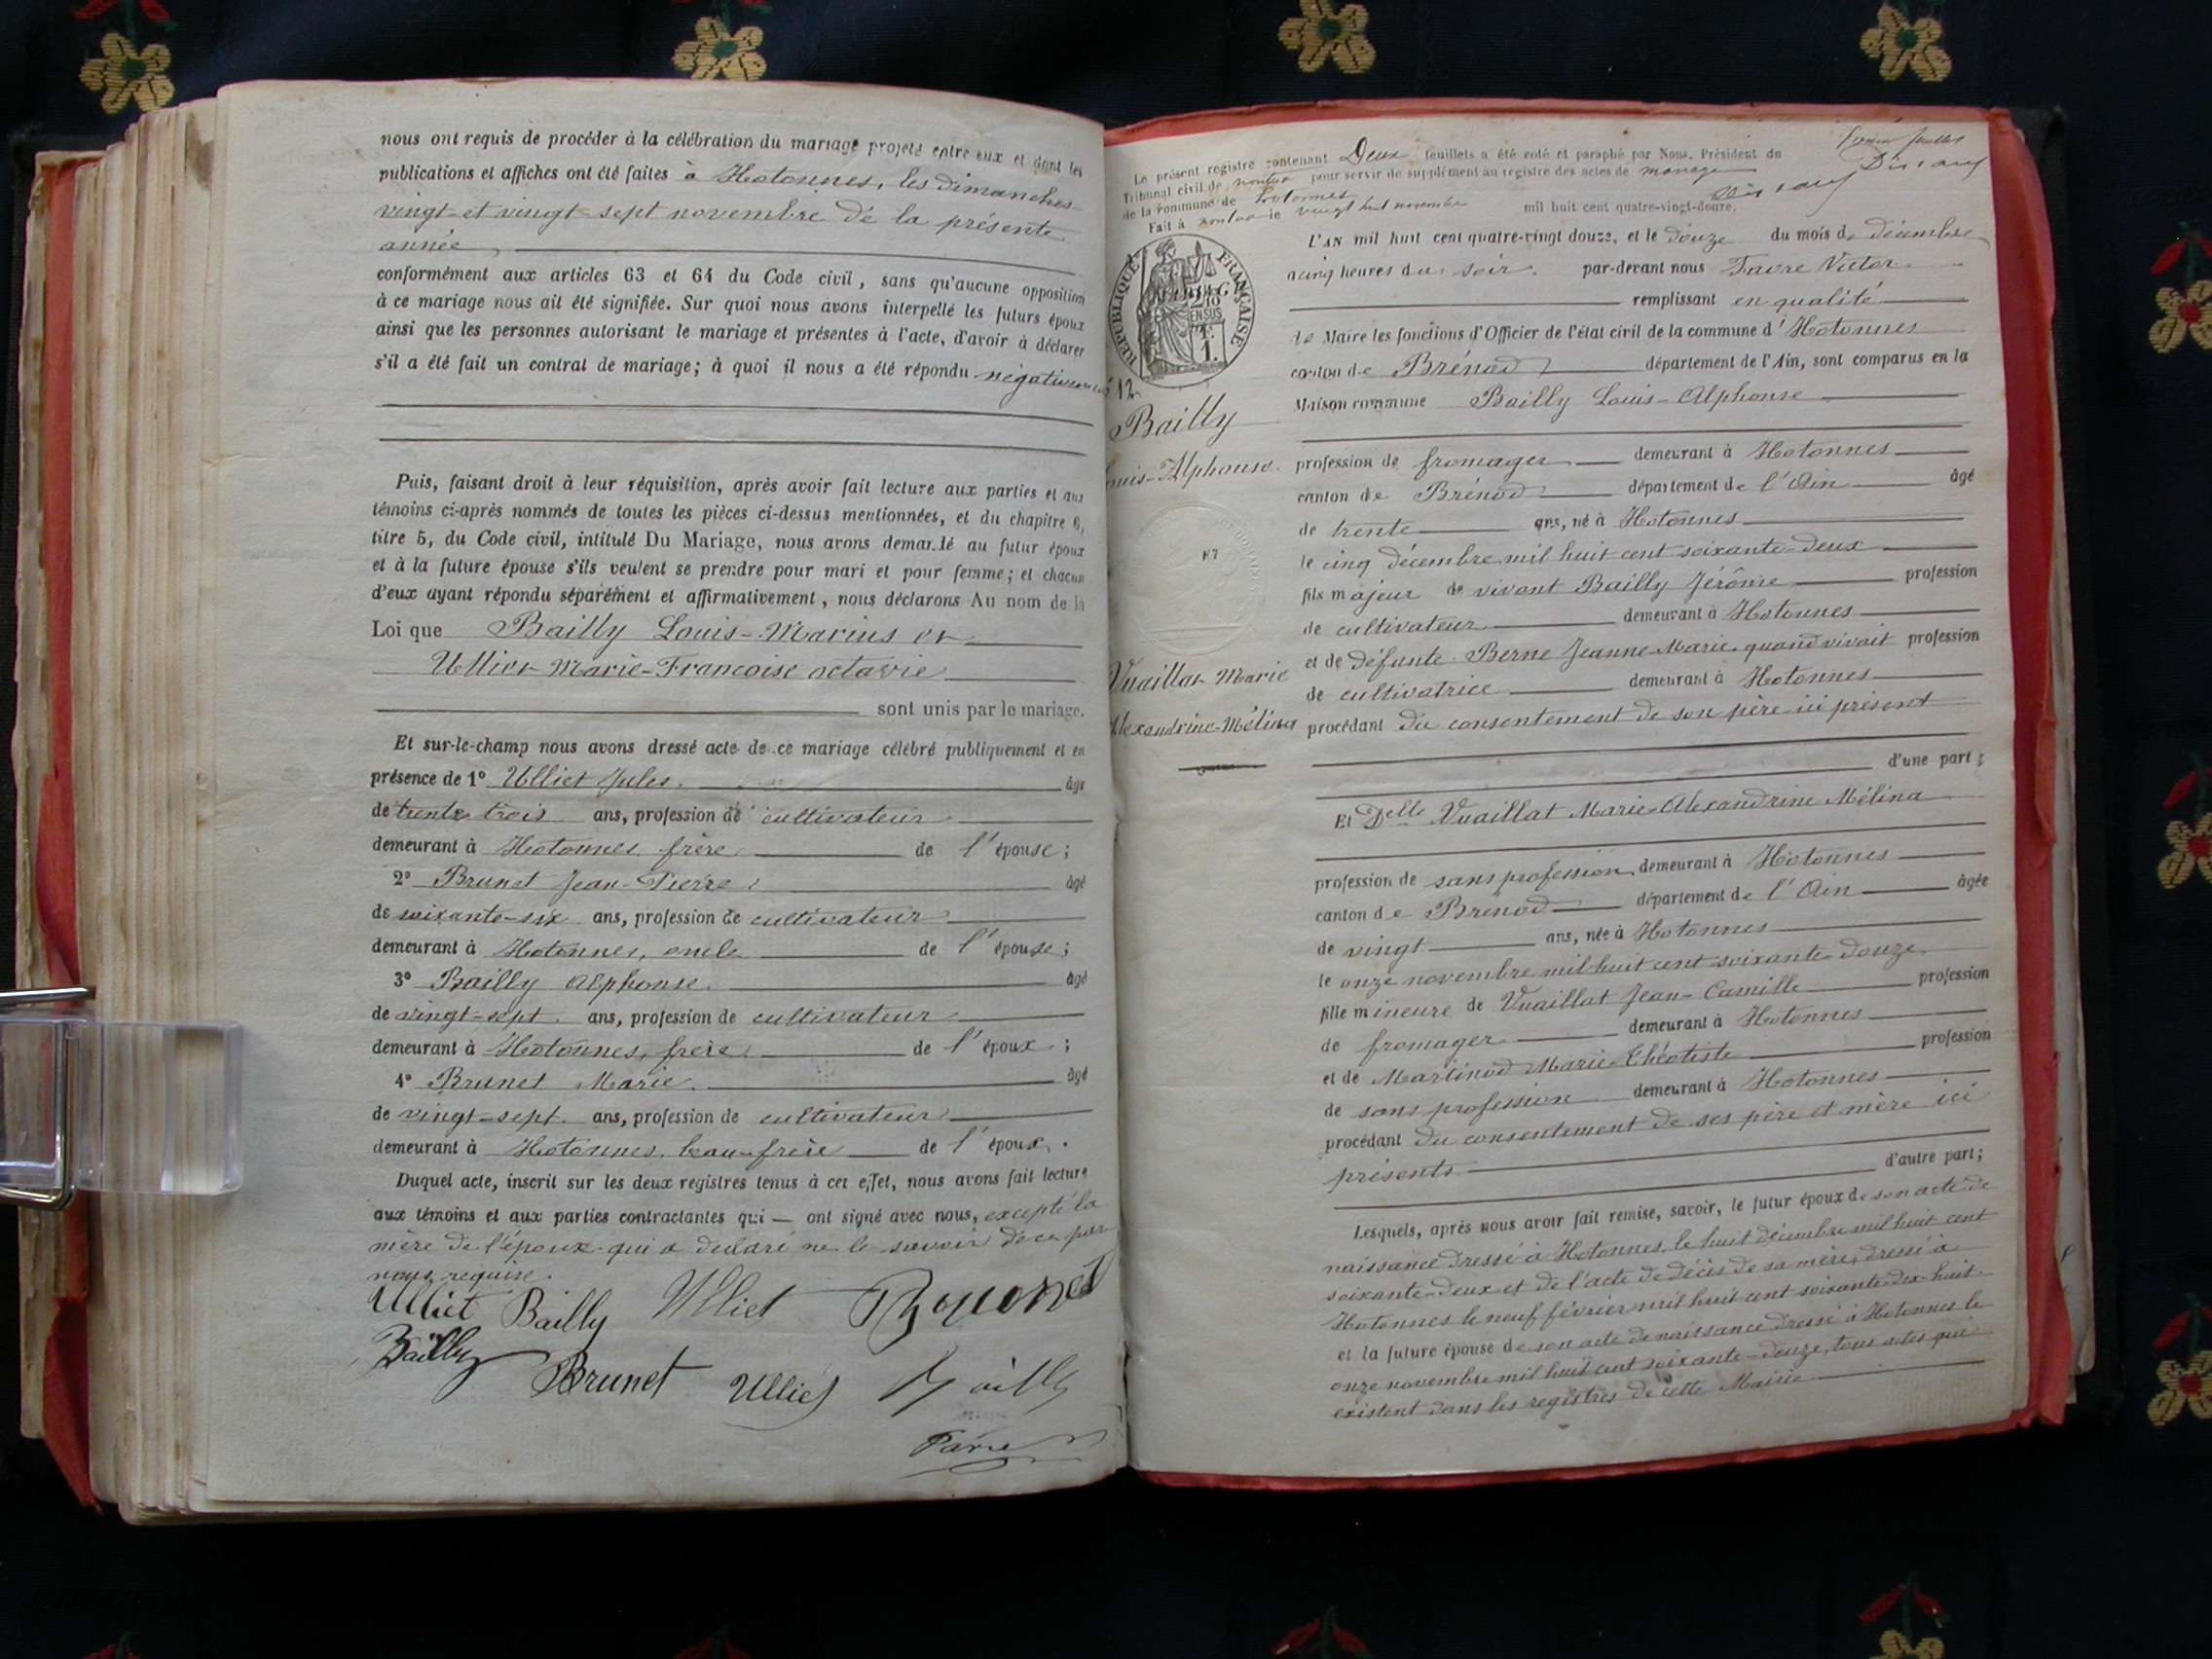 nous ont requis de procéder à la célébration du mariage projeté entre eux et dont les
publications et affiches ont été faites à Hotonnes, les dimanches
vingt et vingt-sept novembre de la présente
année
conformément aux articles 63 et 64 du Code civil, sans qu'aucune opposition
à ce mariage nous ait été signifiée. Sur quoi nous avons interpellé les futurs époux
ainsi que les personnes autorisant le mariage et présentes à l'acte, d'avoir à déclarer
s'il a été fait un contrat de mariage; à quoi il nous a été répondu négativement
Puis, faisant droit à leur réquisition, après avoir fait lecture aux parties et aux
témoins ci-après nommés de toutes les pièces ci-dessus mentionnées, et du chapitre 6,
titre 5, du Code civil, intitulé Du Mariage, nous avons demandé au futur époux
et à la future épouse s'ils veulent se prendre pour mari et pour femme; et chacun
d'eux ayant répondu séparément et affirmativement, nous déclarons Au nom de la
Loi que Bailly Louis-Marius et
Ulliet Marie-Francoise octavie
sont unis par le mariage.
Et sur-le-champ nous avons dressé acte de ce mariage célébré publiquement et en
présence de 1° Ulliet Jules. âgé
de trente trois ans, profession de cultivateur
demeurant à Hotonnes, frère de l'épouse;
2° Brunet Jean-Pierre âgé
de soixante-six ans, profession de cultivateur
demeurant à Hotonnes, oncle de l'épouse;
3° Bailly Alphonse. âgé
de vingt-sept. ans, profession de cultivateur
demeurant à Hotonnes, frère de l'époux;
4° Brunet Marie. âgé
de vingt-sept. ans, profession de cultivateur
demeurant à Hotonnes, beau-frère de l'époux.
Duquel acte, inscrit sur les deux registres tenus à cet effet, nous avons fait lecture
aux témoins et aux parties contractantes qui — ont signé avec nous, excepté la
mère de l'époux qui a declaré ne le savoir de ce par
nous requise.
Ulliet Bailly Ulliet
Bailly Brunet Ulliet Bailly
Favre
Le présent registre contenant Deux feuillets a été coté et paraphé par Nous, Président du
Tribunal civil de nantua pour servir de supplément au registre des actes de mariage
de la commune de Hotonnes
Fait à nantua le vingt huit novembre mil huit cent quatre-vingt-douze.
RÉPUBLIQUE FRANÇAISE
2/10
EN SUS
1.
12
Bailly
Louis-Alphonse.
N7
Vuaillat Marie
Alexandrine-Mélina
L'AN mil huit cent quatre-vingt douze, et le douze du mois de décembre
a cinq heures du soir. par-devant nous Favre Victor
remplissant en qualité
de Maire les fonctions d'Officier de l'état civil de la commune d'Hotonnes
canton de Brénod département de l'Ain, sont comparus en la
Maison commune Bailly Louis-Alphonse
profession de fromager demeurant à Hotonnes
canton de Brénod département de l'Ain âgé
de trente ans, né à Hotonnes
le cinq décembre mil huit cent soixante-deux
fils majeur de vivant Bailly Jérôme profession
de cultivateur demeurant à Hotonnes
et de défunte Berne Jeanne-Marie, quand vivait profession
de cultivatrice demeurant à Hotonnes
procédant du consentement de son père ici présent
d'une part;
Et Delle Vuaillat Marie-Alexandrine Mélina
profession de sans profession demeurant à Hotonnes
canton de Brénod département de l'Ain âgée
de vingt ans, née à Hotonnes
le onze novembre mil huit cent soixante-douze
fille mineure de Vuaillat Jean-Camille profession
de fromager demeurant à Hotonnes
et de Martinod Marie-Théotiste profession
de sans profession demeurant à Hotonnes
procédant du consentement de ses père et mère ici
présents
d'autre part;
Lesquels, après nous avoir fait remise, savoir, le futur époux de son acte de
naissance dressé à Hotonnes, le huit décembre mil huit cent
soixante-deux et de l'acte de décès de sa mère, dressé à
Hotonnes le neuf février mil huit cent soixante-dix-huit
et la future épouse de son acte de naissance dressé à Hotonnes le
onze novembre mil huit cent soixante-douze, tous actes qui
existent dans les registres de cette Mairie